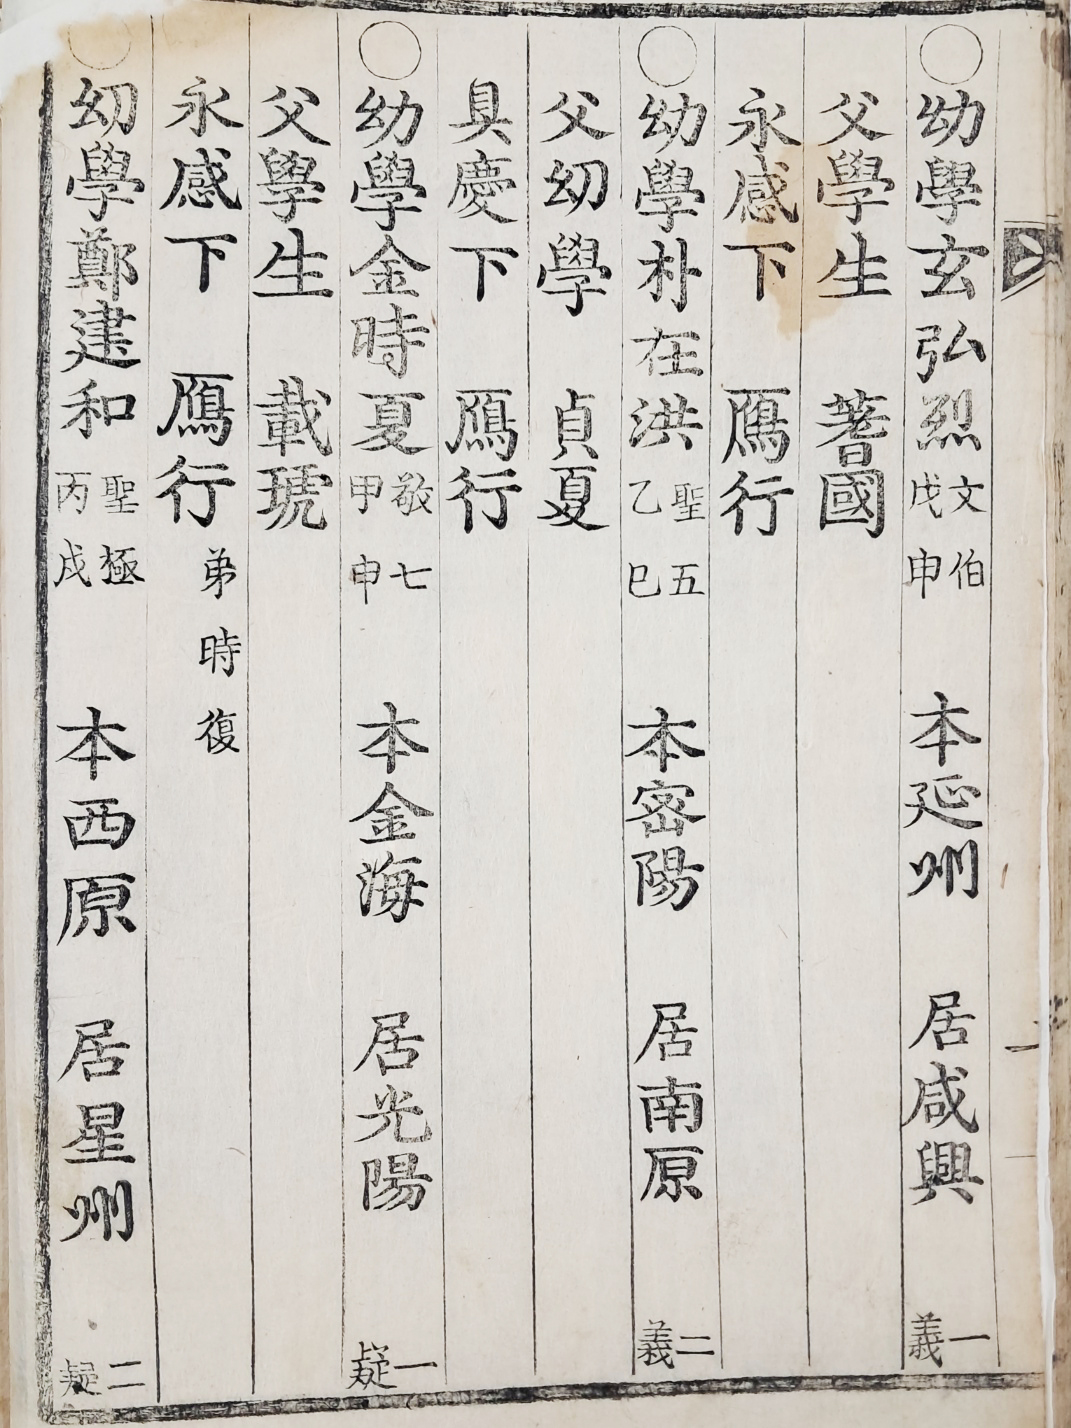 ○幼學玄弘烈 文伯 戊申 本延州 居咸興 一義
父學生 蓍國
永感下 鴈行
○幼學朴在洪 聖五 乙巳 本密陽 居南原 二義
父幼學 貞夏
具慶下 鴈行
○幼學金時夏 敬七 甲申 本金海 居光陽 一疑
父學生 載琥
永感下 鴈行 弟時復
○幼學鄭建和 聖極 丙戌 本西原 居星州 二疑